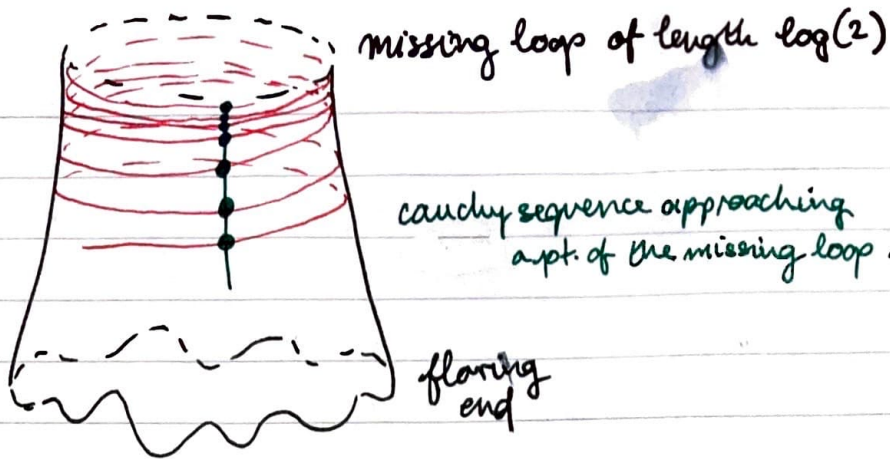 missing loop of length log(2)
cauchy sequence approaching
a pt. of the missing loop.
flaring
end